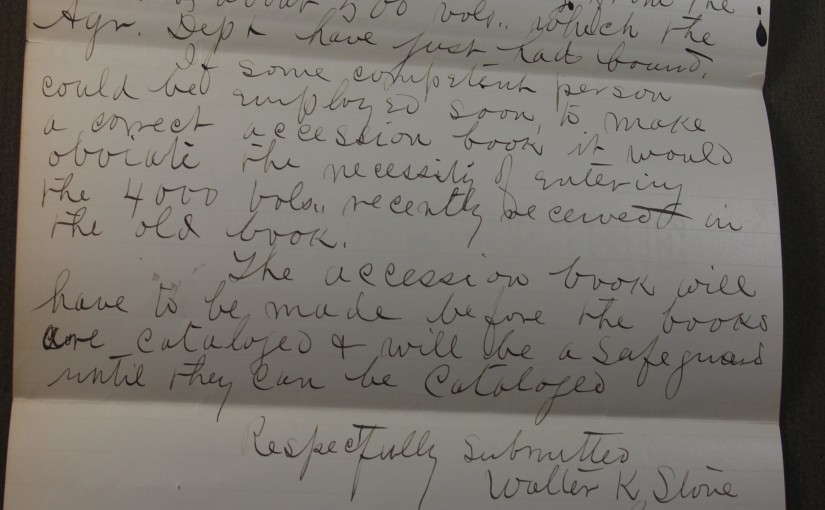 of about 500 vols., from the
Agr. Dept have just had bound, which the
If some competent person
could be employed soon, to make
a correct accession book it would
obviate the necessity of entering
the 4000 vols., recently received in
the old book.
The accession book will
have to be made before the books
are cataloged & will be a safeguard
until they can be cataloged
Respectfully submitted
Walter K. Stone